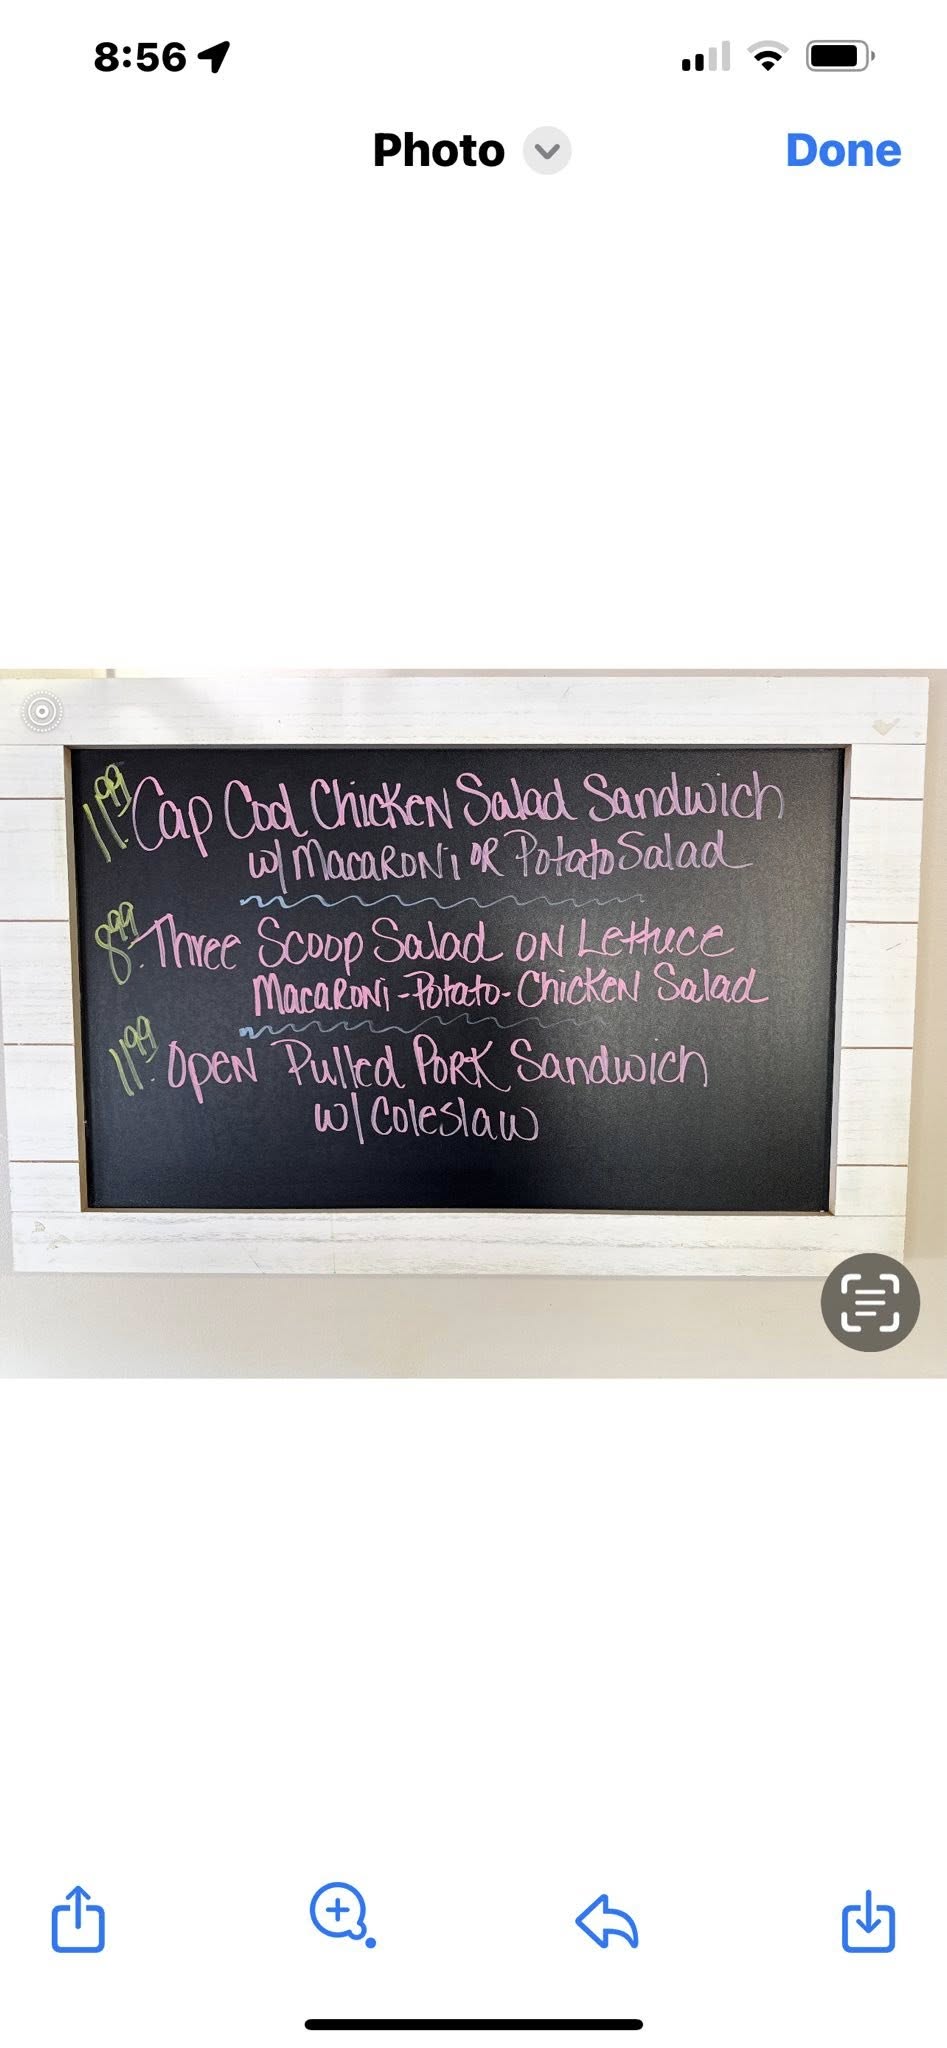 8:56
Photo
Done
11.99 Cap Cod Chicken Salad Sandwich
w/ Macaroni or Potato Salad
8.99 Three Scoop Salad on Lettuce
Macaroni-Potato-Chicken Salad
11.99 Open Pulled Pork Sandwich
w/ Coleslaw